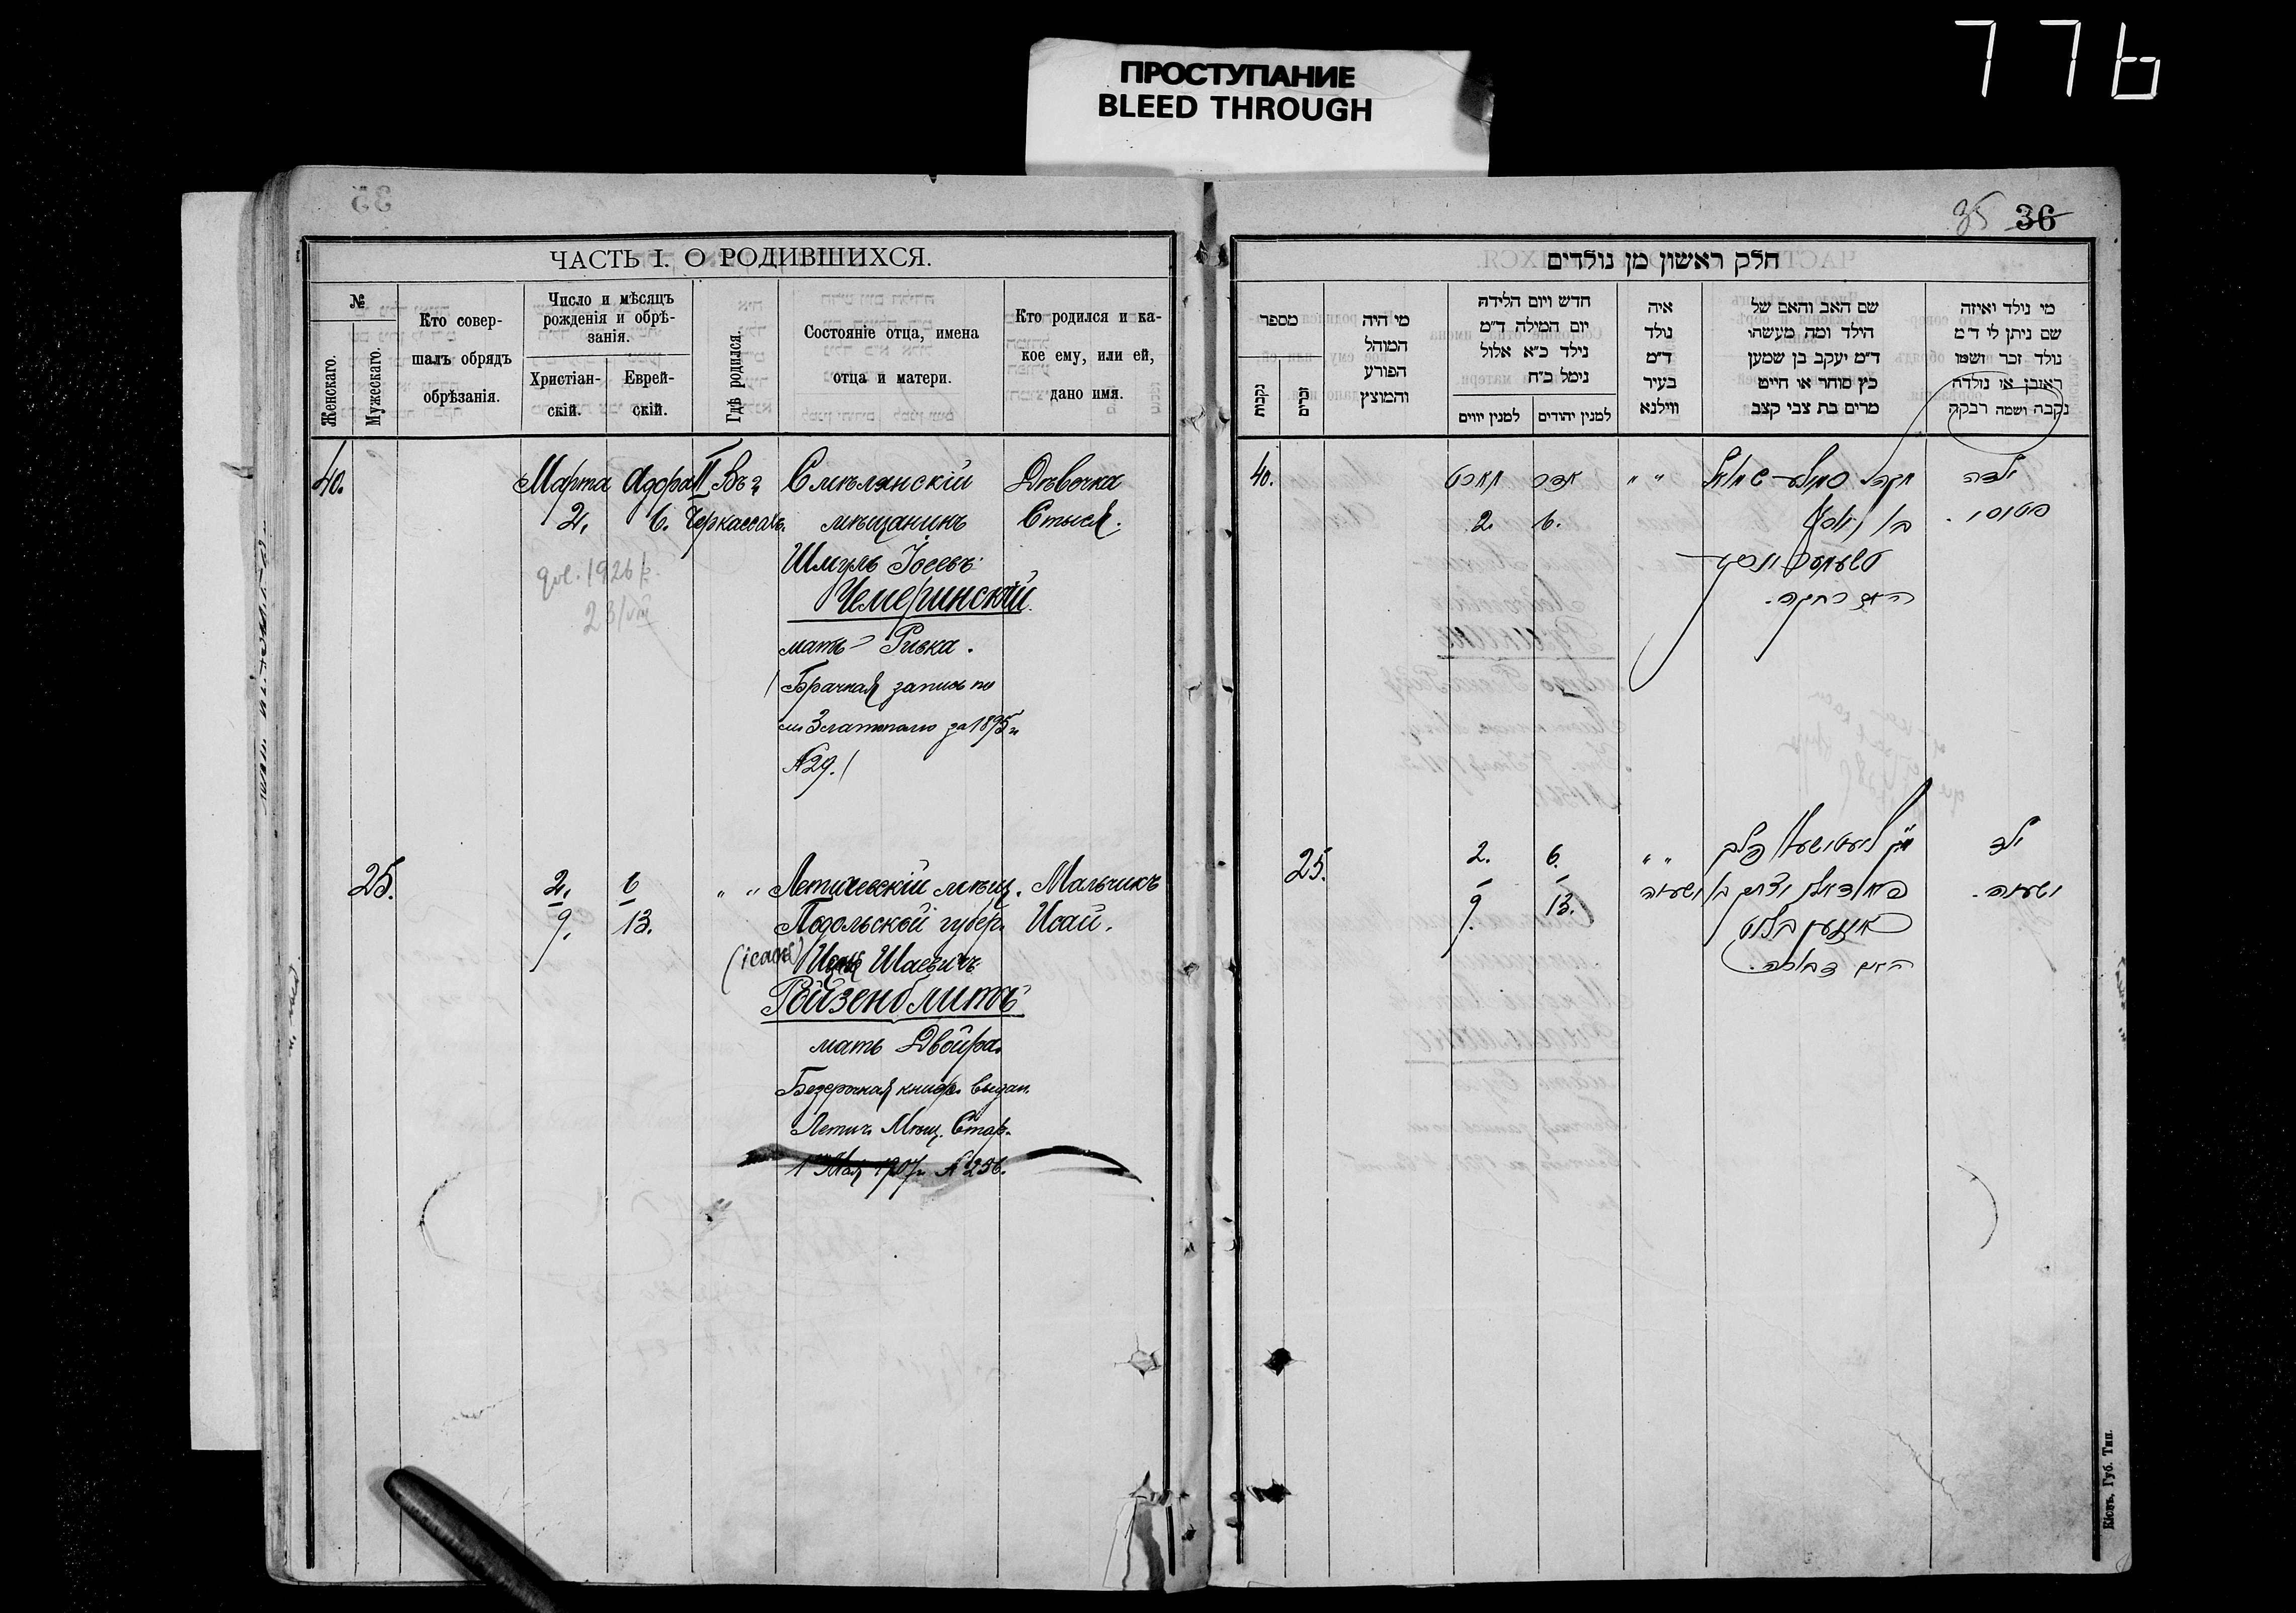 776
ПРОСТУПАНИЕ
BLEED THROUGH
35
ЧАСТЬ I. О РОДИВШИХСЯ.
№
Женскаго.
Мужескаго.
Кто совер-
шалъ обрядъ
обрѣзанія.
Число и мѣсяцъ
рожденія и обрѣ-
занія.
Христіан-
скій.
Еврей-
скій.
Гдѣ родился.
Состояніе отца, имена
отца и матери.
Кто родился и ка-
кое ему, или ей,
дано имя.
40.
Марта
2.
Адора II
6.
Въ г.
Черкассахъ.
Смѣлянскій
мѣщанинъ
Шмуль Іосевъ
Чемеринскій.
мать - Ривка.
/Брачная запись по
м. Златополю за 1895 г.
№ 29./
Дѣвочка
Стыся.
1926
23/VIII
25.
2.
9.
6
13.
" "
Летичевскій мѣщ.
Подольской губер.
Шаевичъ
Ройзенблитъ
мать Двойра.
Безсрочная книжка выдан.
Летич. Мѣщ. Стар.
1 Мая 1907 г. № 256.
Мальчикъ
Исай.
35 36
חלק ראשון מן נולדים
מספר
נקבות
זכרים
מי היה
המוהל
הפורע
והמוצץ
חדש ויום הלידה
יום המילה ד״מ
נילד כ״א אלול
נימל כ״ח
למנין יווים
למנין יהודים
איה
נולד
ד״מ
בעיר
ווילנא
שם האב והאם של
הילד ומה מעשהו
ד״מ יעקב בן שמען
כץ סוחר או חייט
מרים בת צבי קצב
מי נולד ואיזה
שם ניתן לו ד״מ
נולד זכר ושמו
ראובן או נולדה
נקבה ושמה רבקה
40.
מארט
2.
אדר
6.
" "
שמואל
האם רבקה.
ילדה
25.
2.
9.
6.
13.
" "
האם דבורה.
ילד
ישעיה.
Кіевъ, Губ. Тип.